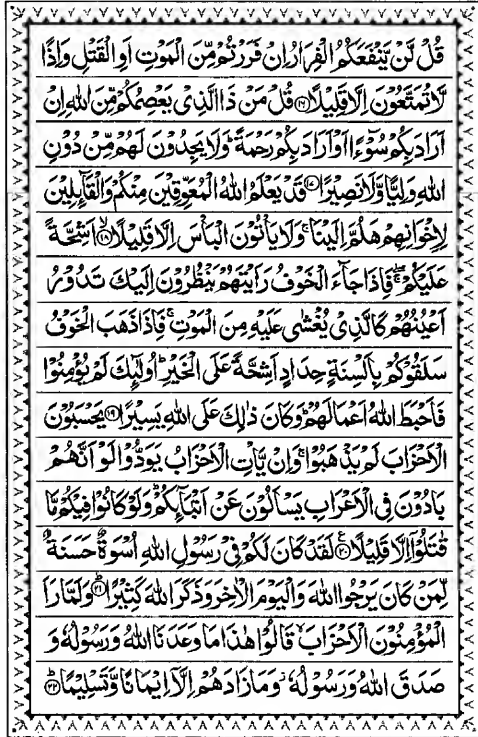 قُلْ لَّنْ یَّنْفَعَكُمُ الْفِرَارُ اِنْ فَرَرْتُمْ مِّنَ الْمَوْتِ اَوِ الْقَتْلِ وَاِذًا
لَّا تُمَتَّعُوْنَ اِلَّا قَلِیْلًا ۝۱۶ قُلْ مَنْ ذَا الَّذِیْ یَعْصِمُكُمْ مِّنَ اللّٰهِ اِنْ
اَرَادَ بِكُمْ سُوْٓءًا اَوْ اَرَادَ بِكُمْ رَحْمَةً ؕ وَلَا یَجِدُوْنَ لَهُمْ مِّنْ دُوْنِ
اللّٰهِ وَلِیًّا وَّلَا نَصِیْرًا ۝۱۷ قَدْ یَعْلَمُ اللّٰهُ الْمُعَوِّقِیْنَ مِنْكُمْ وَالْقَآىِٕلِیْنَ
لِاِخْوَانِهِمْ هَلُمَّ اِلَیْنَا ۚ وَلَا یَاْتُوْنَ الْبَاْسَ اِلَّا قَلِیْلًا ۝۱۸ۙ اَشِحَّةً
عَلَیْكُمْ ۖۚ فَاِذَا جَآءَ الْخَوْفُ رَاَیْتَهُمْ یَنْظُرُوْنَ اِلَیْكَ تَدُوْرُ
اَعْیُنُهُمْ كَالَّذِیْ یُغْشٰی عَلَیْهِ مِنَ الْمَوْتِ ۚ فَاِذَا ذَهَبَ الْخَوْفُ
سَلَقُوْكُمْ بِاَلْسِنَةٍ حِدَادٍ اَشِحَّةً عَلَی الْخَیْرِ ؕ اُولٰٓىِٕكَ لَمْ یُؤْمِنُوْا
فَاَحْبَطَ اللّٰهُ اَعْمَالَهُمْ ؕ وَكَانَ ذٰلِكَ عَلَی اللّٰهِ یَسِیْرًا ۝۱۹ یَحْسَبُوْنَ
الْاَحْزَابَ لَمْ یَذْهَبُوْا ۚ وَاِنْ یَّاْتِ الْاَحْزَابُ یَوَدُّوْا لَوْ اَنَّهُمْ
بَادُوْنَ فِی الْاَعْرَابِ یَسْاَلُوْنَ عَنْ اَنْۢبَآىِٕكُمْ ؕ وَلَوْ كَانُوْا فِیْكُمْ مَّا
قٰتَلُوْۤا اِلَّا قَلِیْلًا ۝۲۰ۧ لَقَدْ كَانَ لَكُمْ فِیْ رَسُوْلِ اللّٰهِ اُسْوَةٌ حَسَنَةٌ
لِّمَنْ كَانَ یَرْجُوا اللّٰهَ وَالْیَوْمَ الْاٰخِرَ وَذَكَرَ اللّٰهَ كَثِیْرًا ۝۲۱ؕ وَلَمَّا رَاَ
الْمُؤْمِنُوْنَ الْاَحْزَابَ ۙ قَالُوْا هٰذَا مَا وَعَدَنَا اللّٰهُ وَرَسُوْلُهٗ وَ
صَدَقَ اللّٰهُ وَرَسُوْلُهٗ ؗ وَمَا زَادَهُمْ اِلَّاۤ اِیْمَانًا وَّتَسْلِیْمًا ۝۲۲ؕ